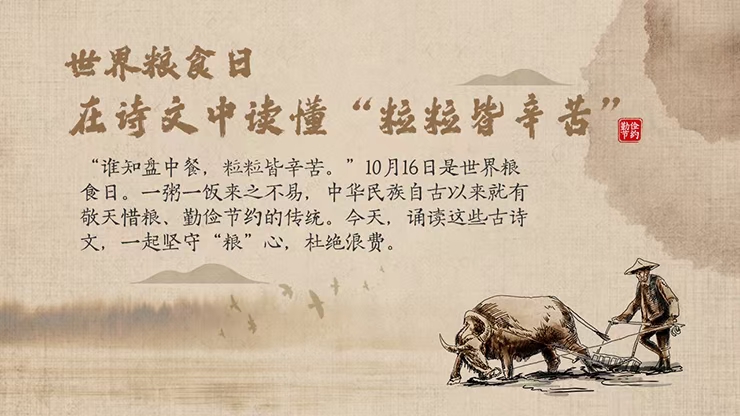 世界粮食日
在诗文中读懂“粒粒皆辛苦”
勤俭节约
“谁知盘中餐，粒粒皆辛苦。”10月16日是世界粮
食日。一粥一饭来之不易，中华民族自古以来就有
敬天惜粮、勤俭节约的传统。今天，诵读这些古诗
文，一起坚守“粮”心，杜绝浪费。